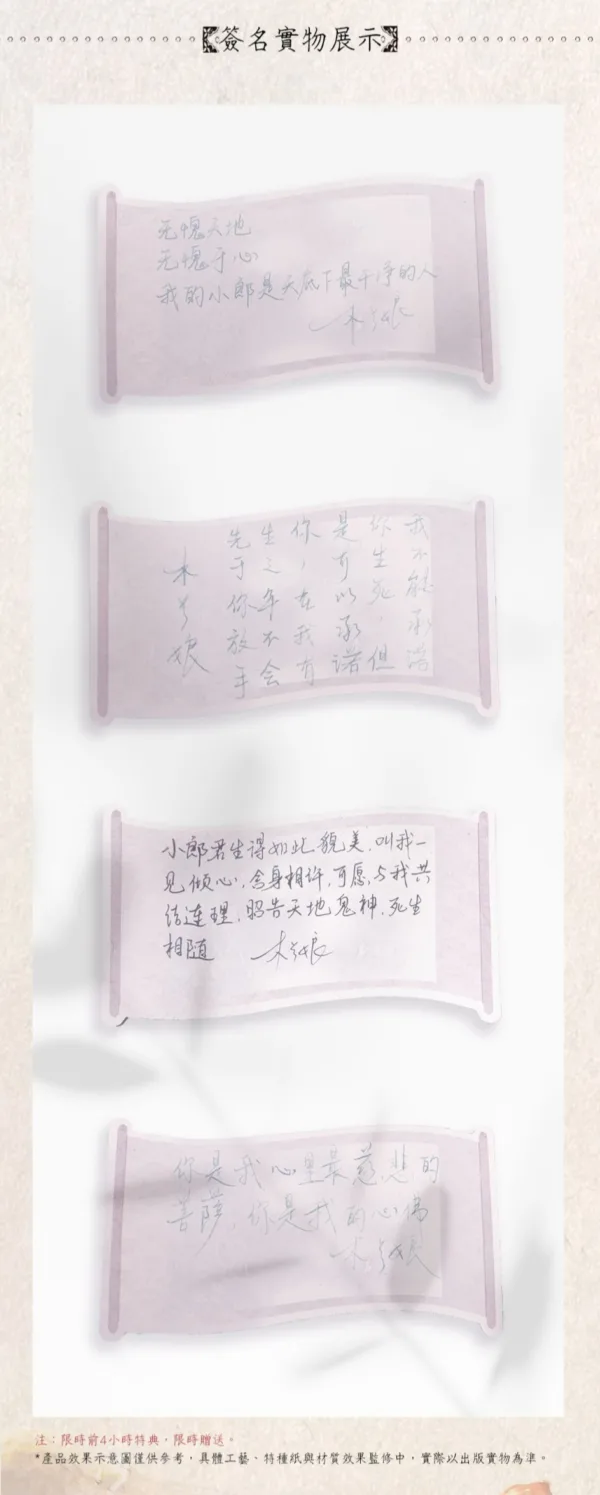 簽名實物展示
无愧天地
无愧于心
我的小郎是天底下最干净的人
木兮娘
我不能承诺
你生死，但
是可以承诺
你，在我有
生之年不会
先于你放手
木兮娘
小郎君生得如此貌美,叫我一
见倾心,身相许,可愿与我共
结连理,昭告天地鬼神,死生
相随 木兮娘
你是我心里最慈悲的
菩萨,你是我的心
木兮娘
注：限時前4小時特典，限時贈送。
*產品效果示意圖僅供參考，具體工藝、特種紙與材質效果監修中，實際以出版實物為準。